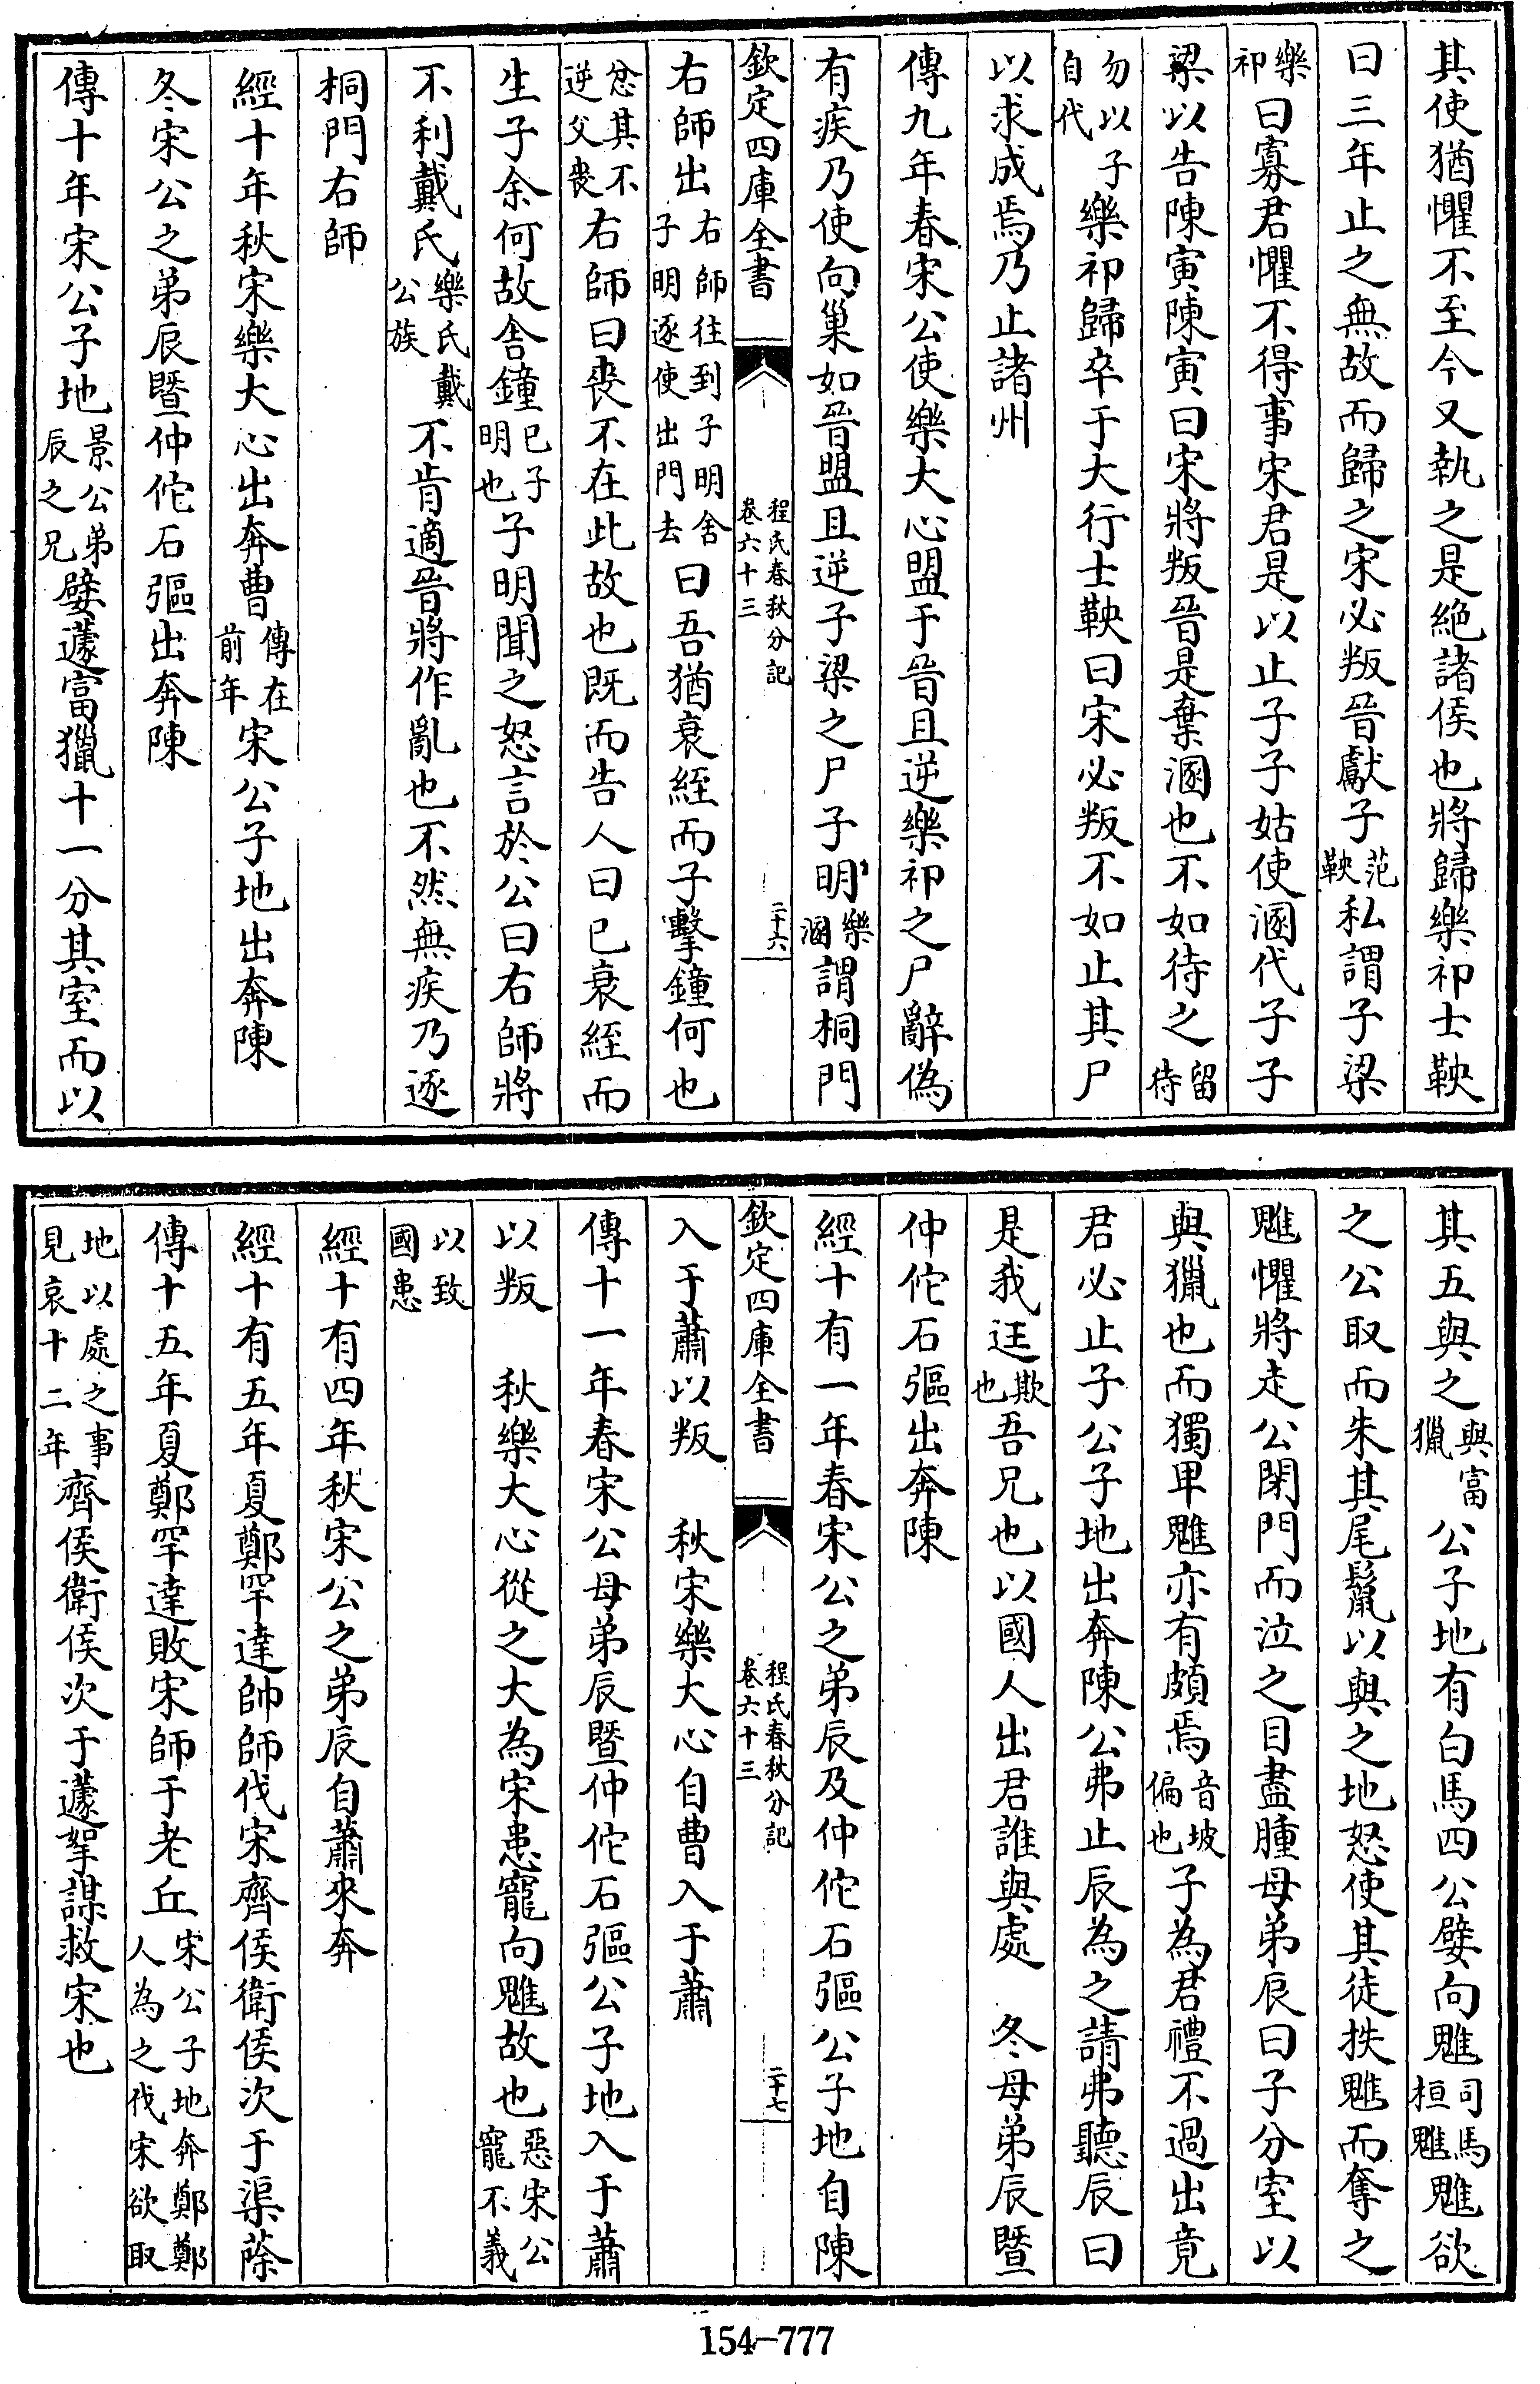 其使猶懼不至今又執之是絶諸侯也將歸樂祁士鞅
曰三年止之無故而歸之宋必叛晉獻子范鞅私謂子梁
樂祁曰寡君懼不得事宋君是以止子子姑使溷代子子
梁以告陳寅陳寅曰宋將叛晉是棄溷也不如待之留待
勿以子自代樂祁歸卒于大行士鞅曰宋必叛不如止其尸
以求成焉乃止諸州
傳九年春宋公使樂大心盟于晉且逆樂祁之尸辭偽
有疾乃使向巢如晉盟且逆子梁之尸子明樂溷謂桐門
欽定四庫全書
程氏春秋分記
卷六十三
二十六
右師出右師往到子明舍子明逐使出門去曰吾猶衰絰而子擊鐘何也
忿其不逆父喪右師曰喪不在此故也既而告人曰已衰絰而
生子余何故舍鐘已子明也子明聞之怒言於公曰右師將
不利戴氏樂氏戴公族不肯適晉將作亂也不然無疾乃逐
桐門右師
經十年秋宋樂大心出奔曹傳在前年宋公子地出奔陳
冬宋公之弟辰暨仲佗石彄出奔陳
傳十年宋公子地景公弟辰之兄嬖蘧富獵十一分其室而以
其五與之與富獵公子地有白馬四公嬖向魋司馬桓魋魋欲
之公取而朱其尾鬣以與之地怒使其徒抶魋而奪之
魋懼將走公閉門而泣之目盡腫母弟辰曰子分室以
與獵也而獨卑魋亦有頗焉音坡偏也子為君禮不過出竟
君必止子公子地出奔陳公弗止辰為之請弗聽辰曰
是我迋欺也吾兄也以國人出君誰與處　冬母弟辰暨
仲佗石彄出奔陳
經十有一年春宋公之弟辰及仲佗石彄公子地自陳
欽定四庫全書
程氏春秋分記
卷六十三
二十七
入于蕭以叛　秋宋樂大心自曹入于蕭
傳十一年春宋公母弟辰暨仲佗石彄公子地入于蕭
以叛　秋樂大心從之大為宋患寵向魋故也惡宋公寵不義
以致國患
經十有四年秋宋公之弟辰自蕭來奔
經十有五年夏鄭罕達帥師伐宋齊侯衛侯次于渠蒢
傳十五年夏鄭罕達敗宋師于老丘宋公子地奔鄭鄭人為之伐宋欲取
地以處之事見哀十二年齊侯衛侯次于蘧挐謀救宋也
154-777